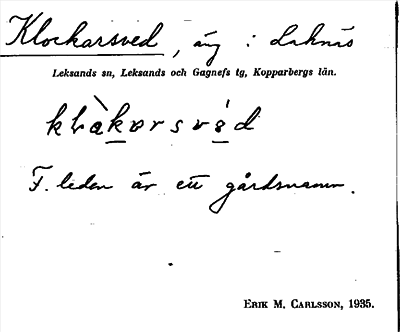 Klockarsved, äng i Laknäs
Leksands sn, Leksands och Gagnefs tg, Kopparbergs län.
F. leden är ett gårdsnamn.
ERIK M. CARLSSON, 1935.